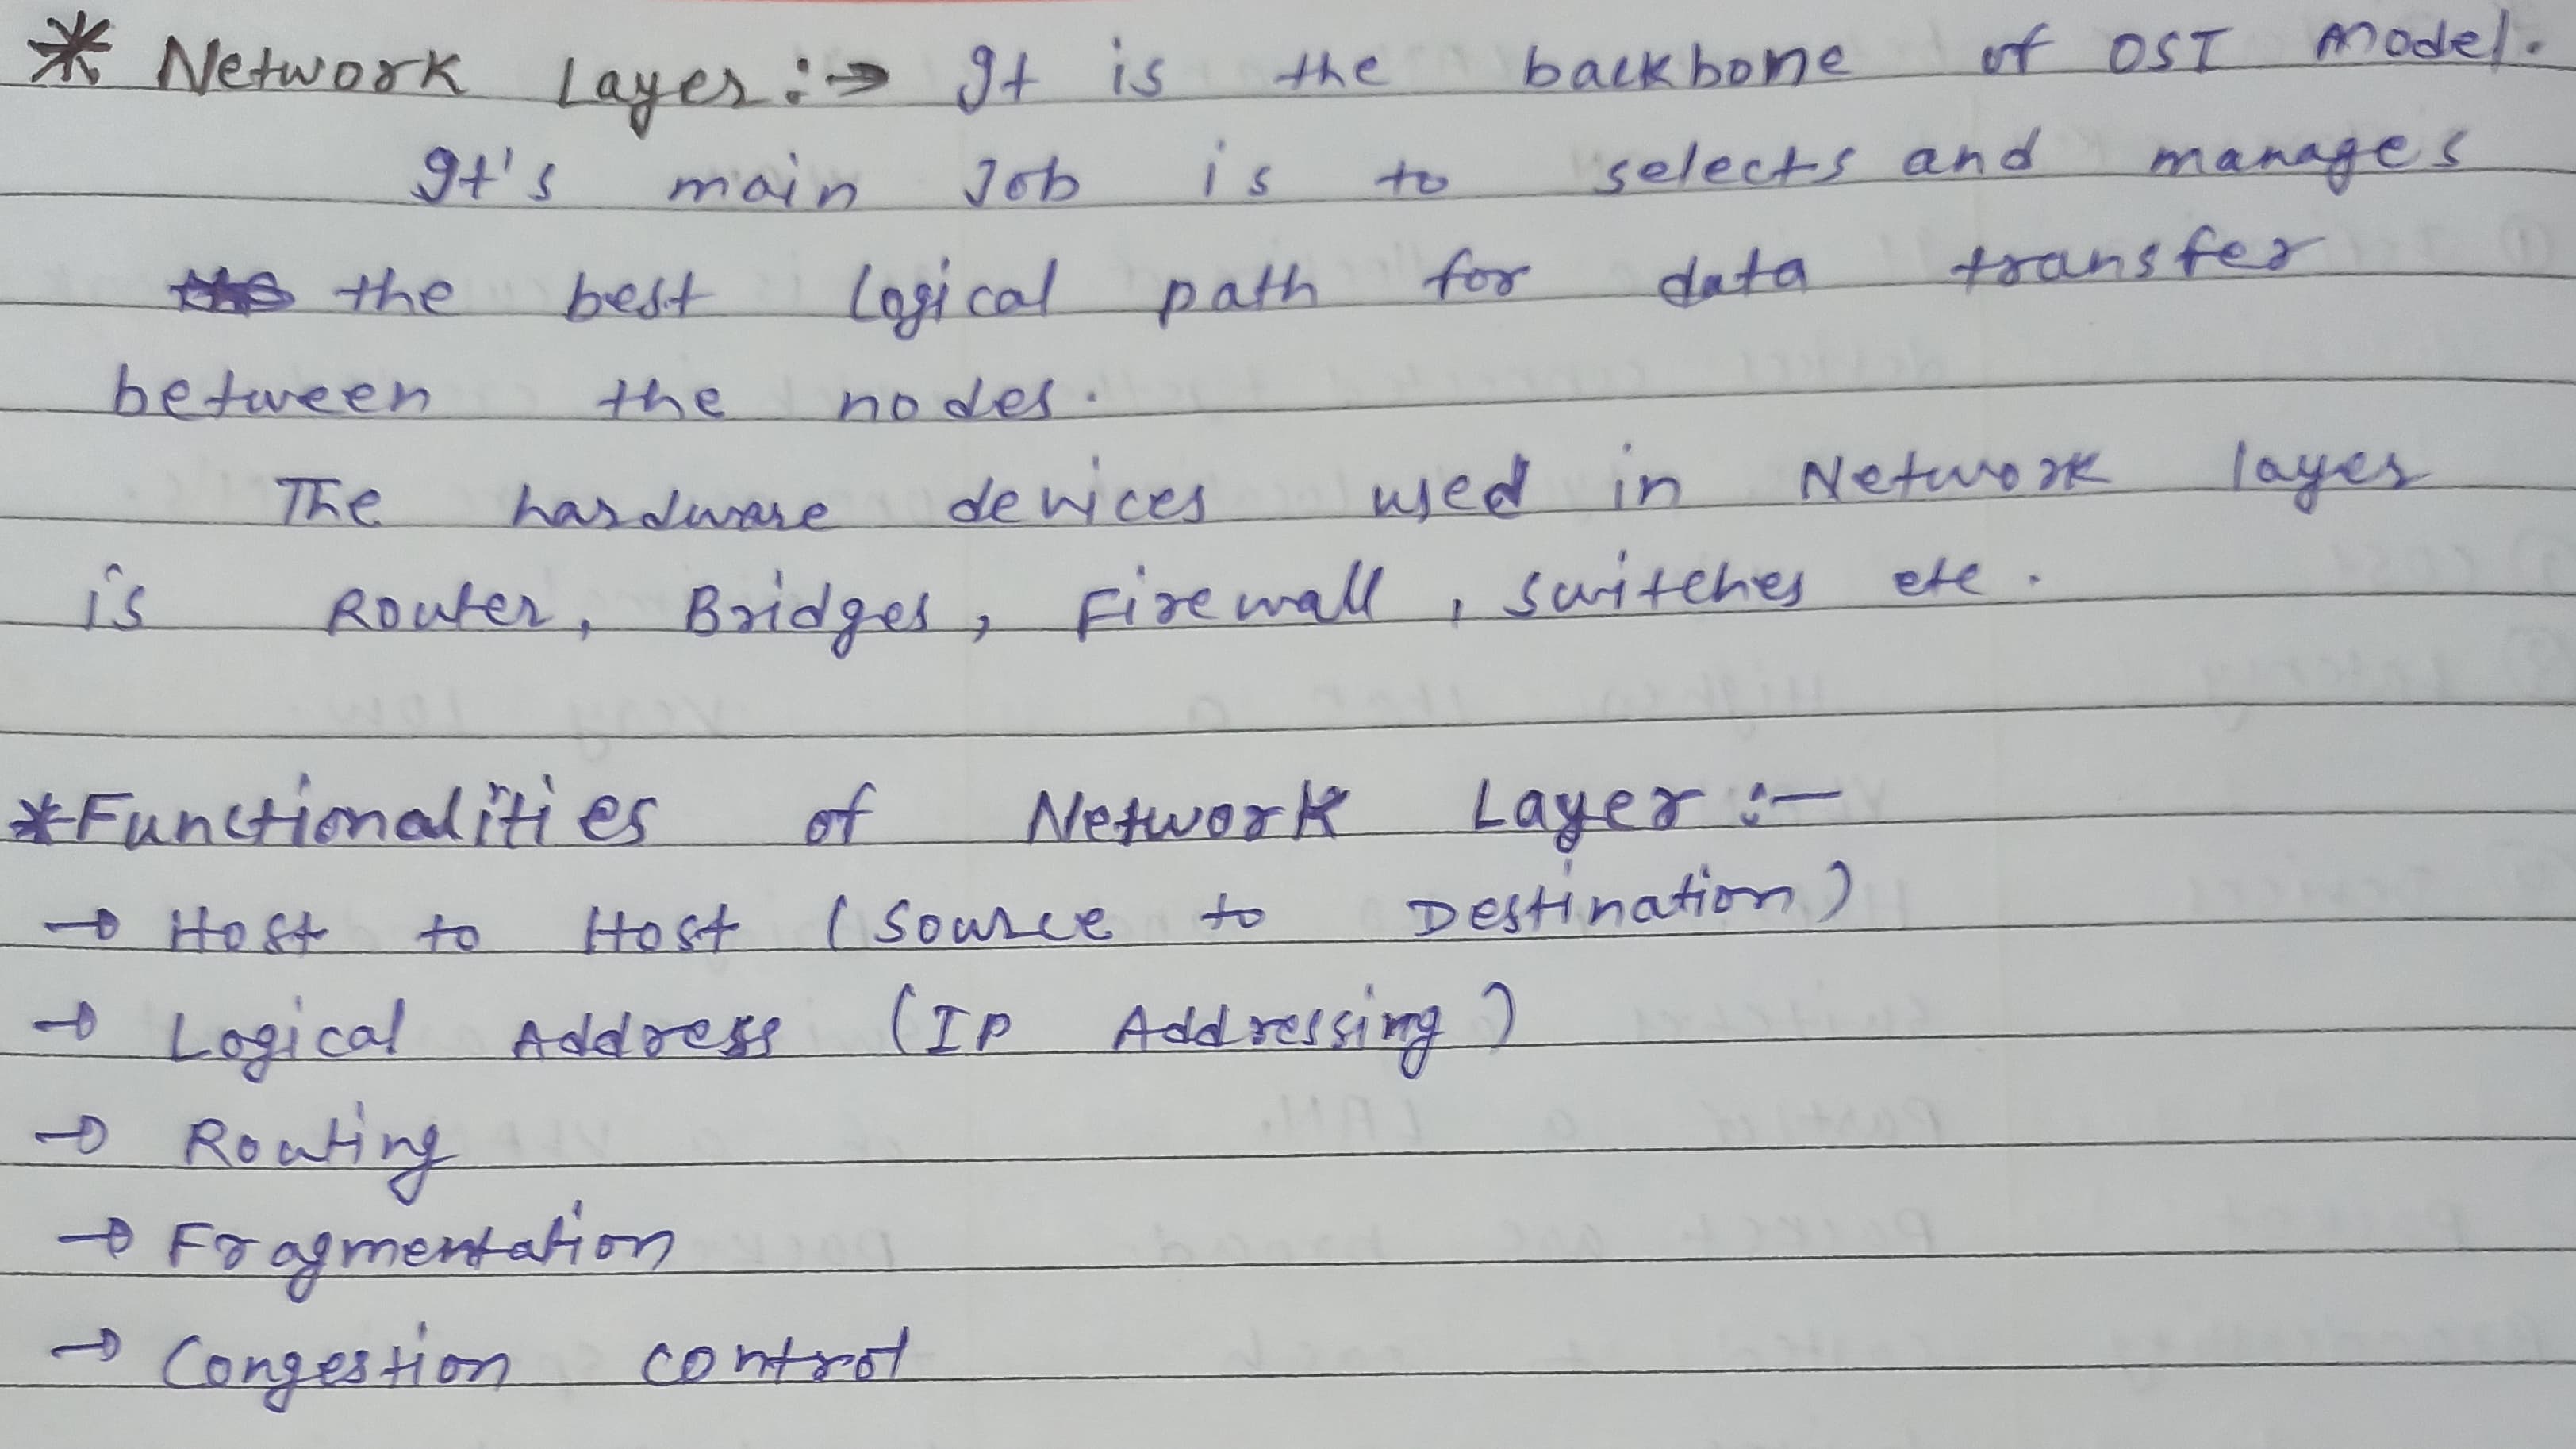 * Network Layer :→ It is the backbone of OSI Model.
It's main Job is to selects and manages
the best logical path for data transfer
between the nodes.
The hardware devices used in Network layer
is Router, Bridges, Firewall, switches etc.
*Functionalities of Network Layer :-
→ Host to Host (Source to Destination)
→ Logical Address (IP Addressing)
→ Routing
→ Fragmentation
→ Congestion control